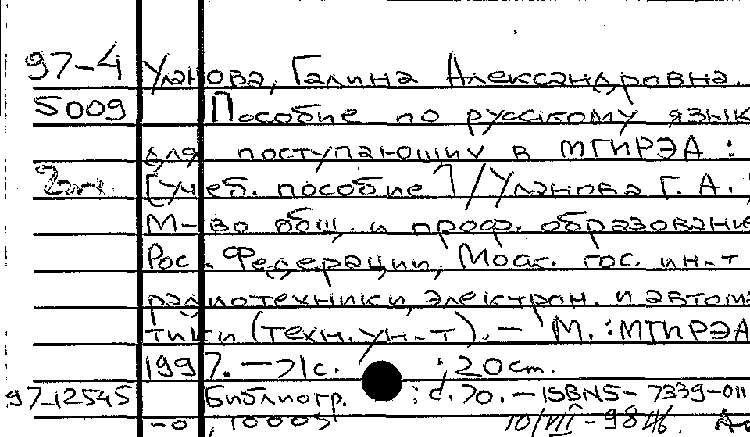 97-4 Уланова, Галина Александровна.
5009 Пособие по русскому язык
для поступающих в МГИРЭА :
[учеб. пособие] / Уланова Г. А.;
М-во общ. и проф. образовани
Рос. Федерации, Моск. гос. ин-т
радиотехники, электрон. и автома
тики (техн. ун-т). - М. : МГИРЭА
1997. - 71с. ; 20 см.
97-12545 Библиогр. : с. 70. - ISBN5-7339-011
-0, 1000э
10/VII-98